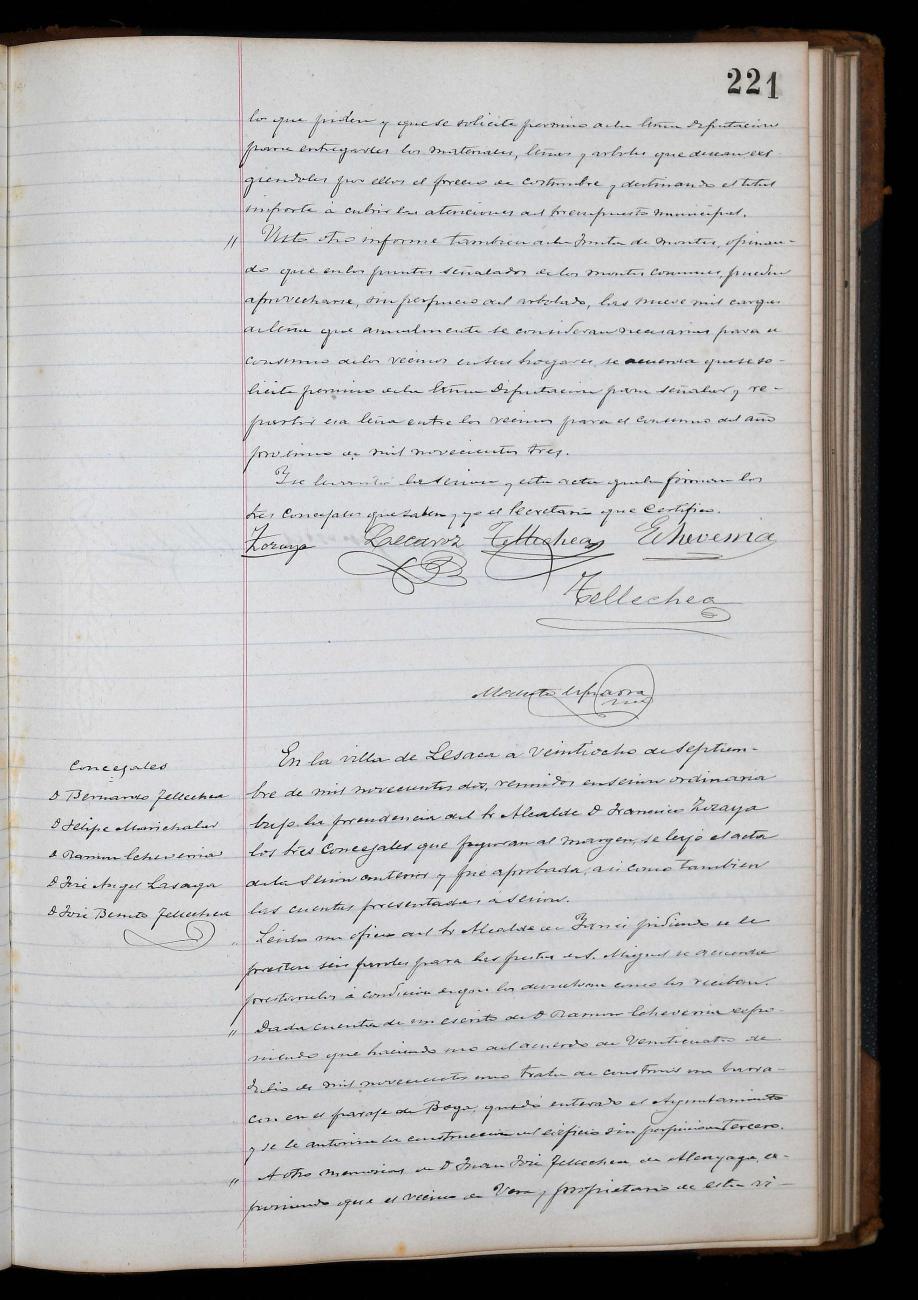 221
lo que piden y que se solicite permiso de la Exma Diputacion
para entregarles los materiales, leñas y arboles que desean, exi-
giendoles por ellos el precio de costumbre y destinando el total
importe á cubrir las atenciones del presupuesto municipal.
" Visto otro informe tambien de la Junta de Montes, opinan-
do que en los puntos señalados de los montes comunes, pueden
aprovecharse, sin perjuicio del arbolado, las nueve mil cargas
de leña que anualmente se consideran necesarias para el
consumo de los vecinos en sus hogares, se acuerda que se so-
licite permiso de la Exma Diputacion para señalar y re-
partir esa leña entre los vecinos para el consumo del año
proximo de mil novecientos tres.
Y se levantó la sesion y esta acta que la firman los
tres Concejales que saben, y yo el Secretario que Certifico.
Zozaya Lecaroz Tellechea Echeverria
Tellechea
Concejales
D Bernardo Tellechea
D Felipe Marichalar
D Ramon Echeverria
D José Angel Lasaga
D José Benito Tellechea
En la villa de Lesaca a veintiocho de Septiem-
bre de mil novecientos dos, reunidos en sesion ordinaria
bajo la presidencia del Sr Alcalde D Francisco Zozaya
los tres Concejales que figuran al margen, se leyó el acta
de la sesion anterior y fue aprobada, asi como tambien
las cuentas presentadas a sesion.
" Leido un oficio del Sr Alcalde de Yanci pidiendo se le
presten seis faroles para las fiestas de S. Miguel se acuerda
prestarselos á condicion de que los devuelvan como los reciban.
" Dada cuenta de un escrito de D Ramon Echeverria expo-
niendo que haciendo uso del acuerdo de veinticuatro de
Julio de mil novecientos uno trata de construir una barra-
ca en el paraje de Baga, quedó enterado el Ayuntamiento
y se le autoriza la construccion del edificio sin perjuicio de tercero.
" A otro memorial de D Juan José Tellechea de Alcayaga, ex-
poniendo que el vecino de Vera y propietario de esta vi-